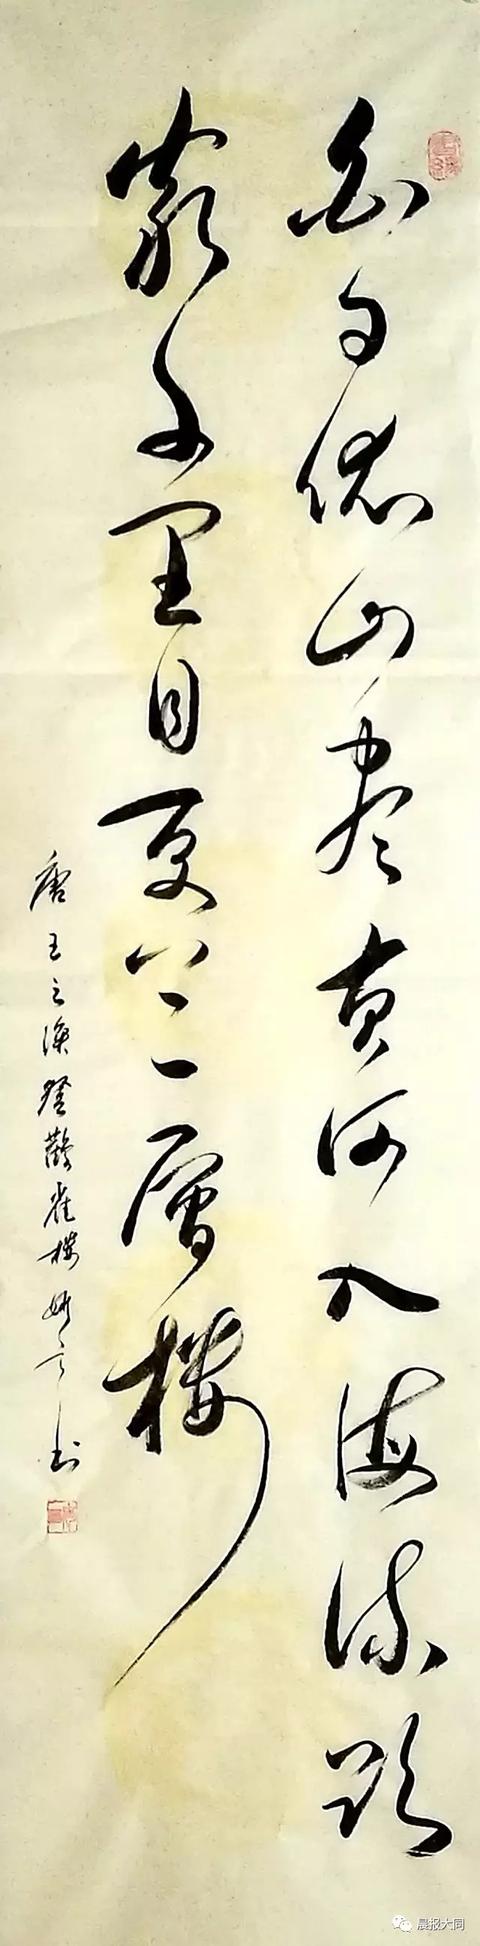 白日依山尽黄河入海流欲
窮千里目更上一層楼
唐王之涣登鹳雀楼 书
晨报大同